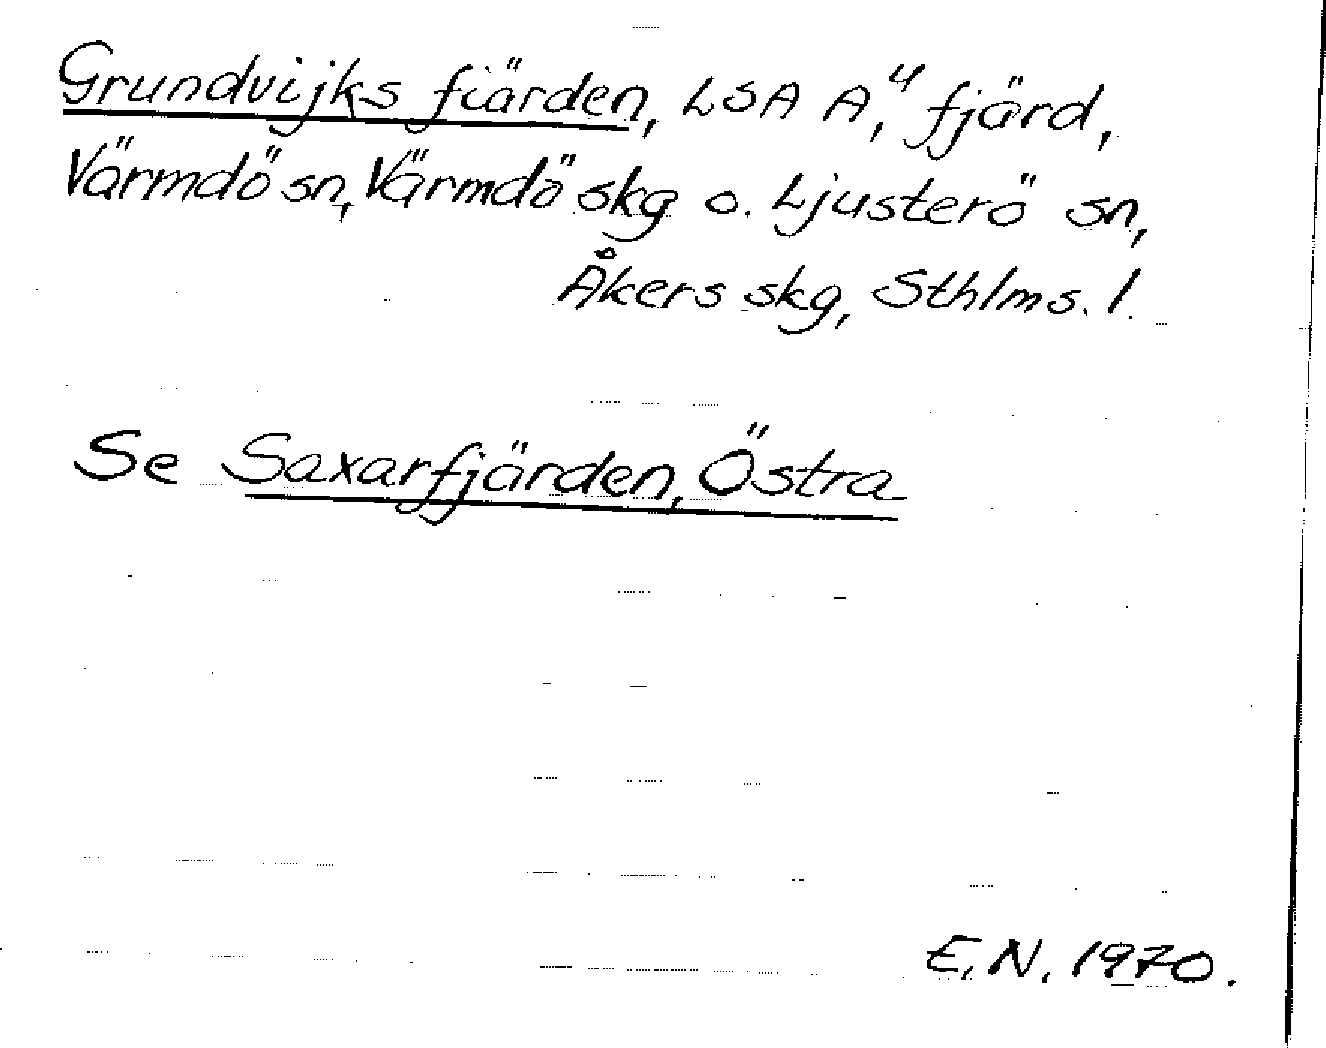 Grundvijks fiärden, LSA A,⁴ fjärd,
Värmdö sn, Värmdö skg o. Ljusterö sn,
Åkers skg, Sthlms. l.
Se Saxarfjärden, Östra
E.N. 1970.